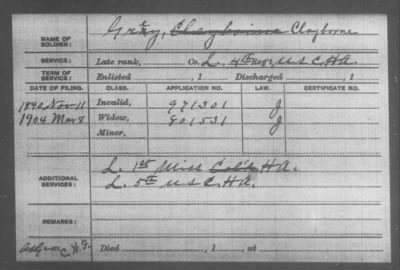 NAME OF SOLDIER: Gray, Clayborne Clayborne
SERVICE: Late rank, Co. L, 4th Reg't U S C. H A.
TERM OF SERVICE: Enlisted , 1 Discharged , 1
DATE OF FILING. CLASS. APPLICATION NO. LAW. CERTIFICATE NO.
1890 Nov 11 Invalid, 971301 J
1904 Mar 8 Widow, 801531 J
Minor,
ADDITIONAL SERVICES: L. 1st Miss Col'd H A.
L. 5th U S C. H A.
REMARKS:
Died , 1 , at